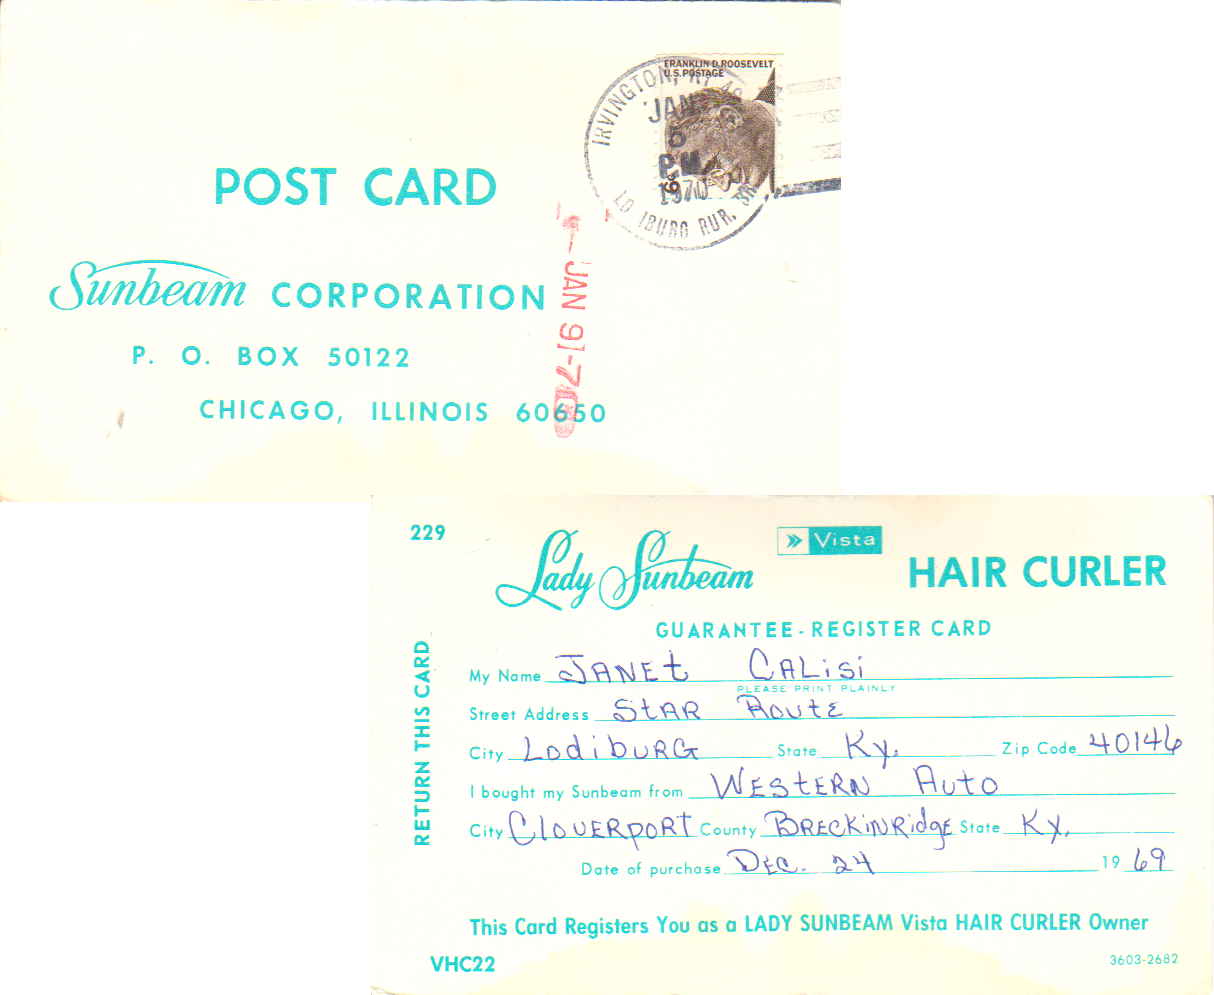 POST CARD
Sunbeam CORPORATION
P. O. BOX 50122
CHICAGO, ILLINOIS 60650
FRANKLIN D. ROOSEVELT
U.S. POSTAGE
6¢
IRVINGTON, KY
JAN
5
PM
1970
RUR.
JAN 9 1-70
229
Lady Sunbeam
Vista
HAIR CURLER
GUARANTEE - REGISTER CARD
RETURN THIS CARD
My Name JANEt CALiSi
PLEASE PRINT PLAINLY
Street Address StAR RoutE
City LodibuRG State Ky. Zip Code 40146
I bought my Sunbeam from WEStERN Auto
City CloVERpoRT County BRECKiNRidgE State Ky.
Date of purchase DEC. 24 1969
This Card Registers You as a LADY SUNBEAM Vista HAIR CURLER Owner
VHC22
3603-2682